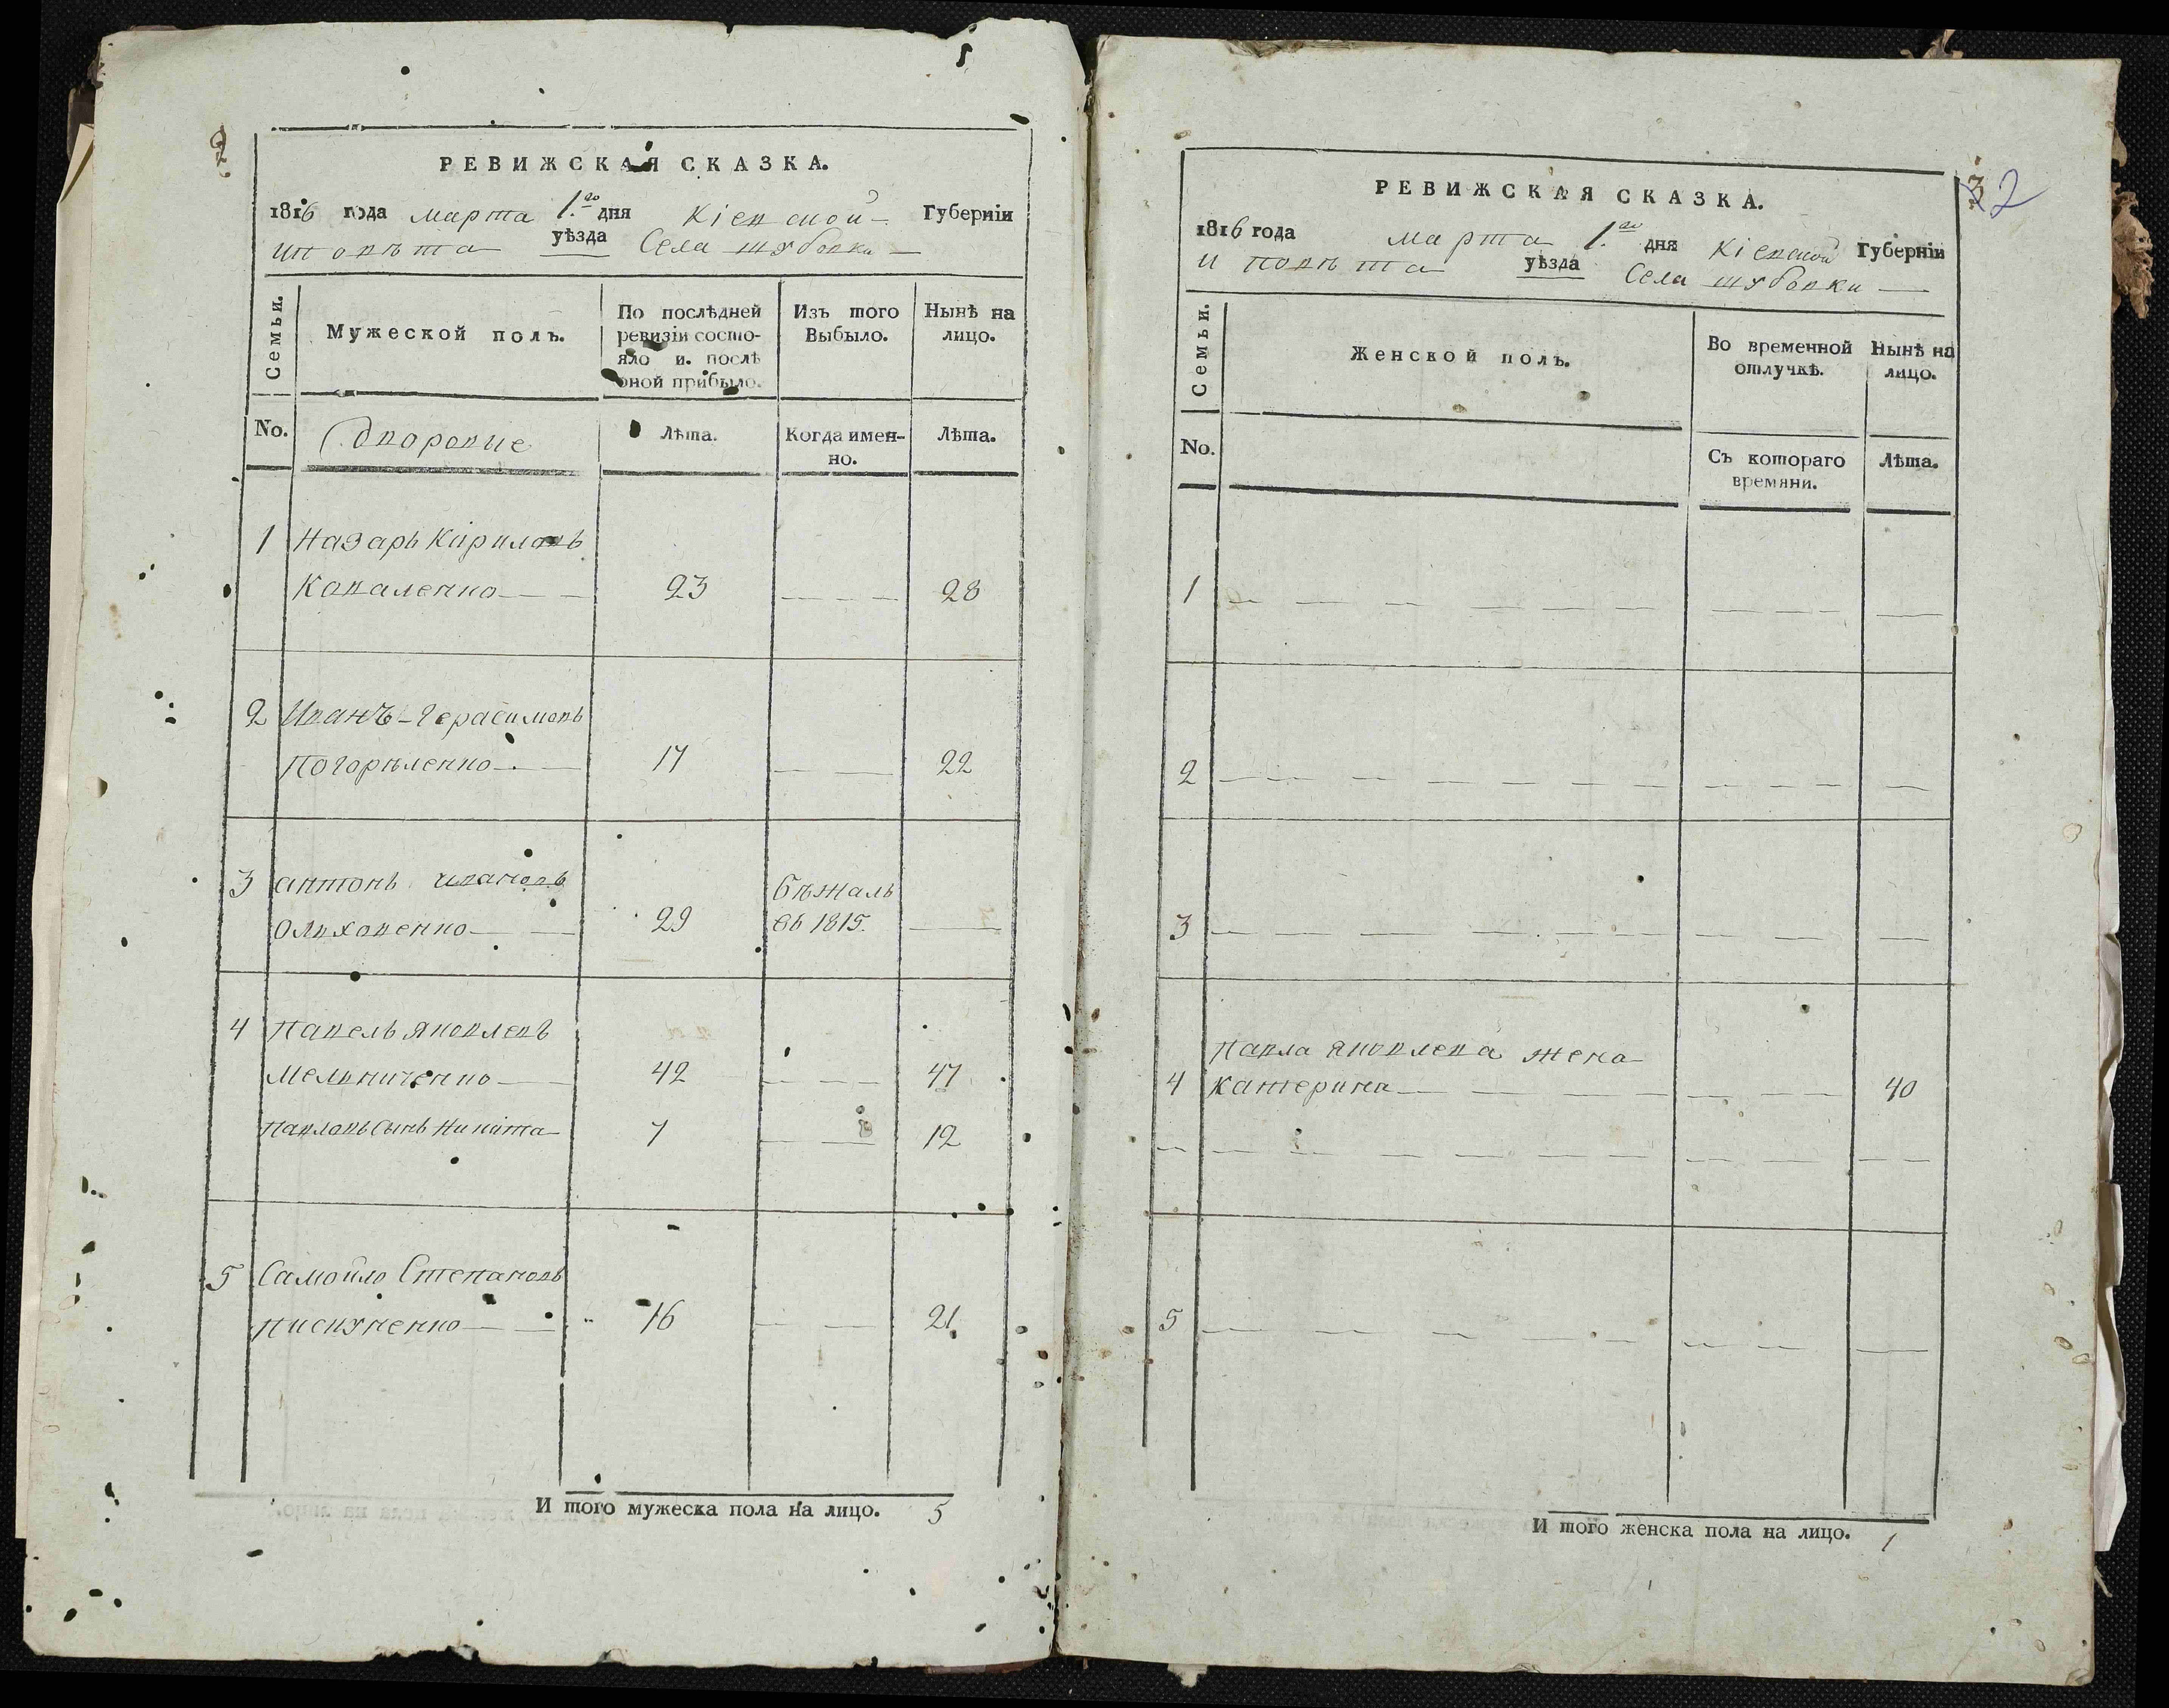 РЕВИЖСКАЯ СКАЗКА.
1816 года марта 1.го дня Кіевской Губерніи
и повѣта уѣзда Села шубовки
Семьи.
Мужеской полъ.
По послѣдней ревизіи состо-
яло и послѣ
оной прибыло.
Изъ того
Выбыло.
Нынѣ на
лицо.
No.
Дворовые
Лѣта.
Когда имен-
но.
Лѣта.
1 Назаръ Кириловъ
Коваленко 23 28
2 Иванъ Герасимовъ
Погорѣленко 17 22
3 антонъ ивановъ бѣжалъ
Ольховенко 29 въ 1815.
4 Павелъ Яковлевъ
Мельниченко 42 47
Павловъ Сынъ Никита 7 12
5 Самойло Степановъ
пискуненко 16 21
И того мужеска пола на лицо. 5
32
РЕВИЖСКАЯ СКАЗКА.
1816 года марта 1.го дня Кіевской Губерніи
и повѣта уѣзда Села шубовки
Семьи.
Женской полъ.
Во временной
отлучкѣ.
Нынѣ на
лицо.
No.
Съ котораго
времяни.
Лѣта.
1
2
3
Павла Яковлева жена
4 Катерина 40
5
И того женска пола на лицо. 1